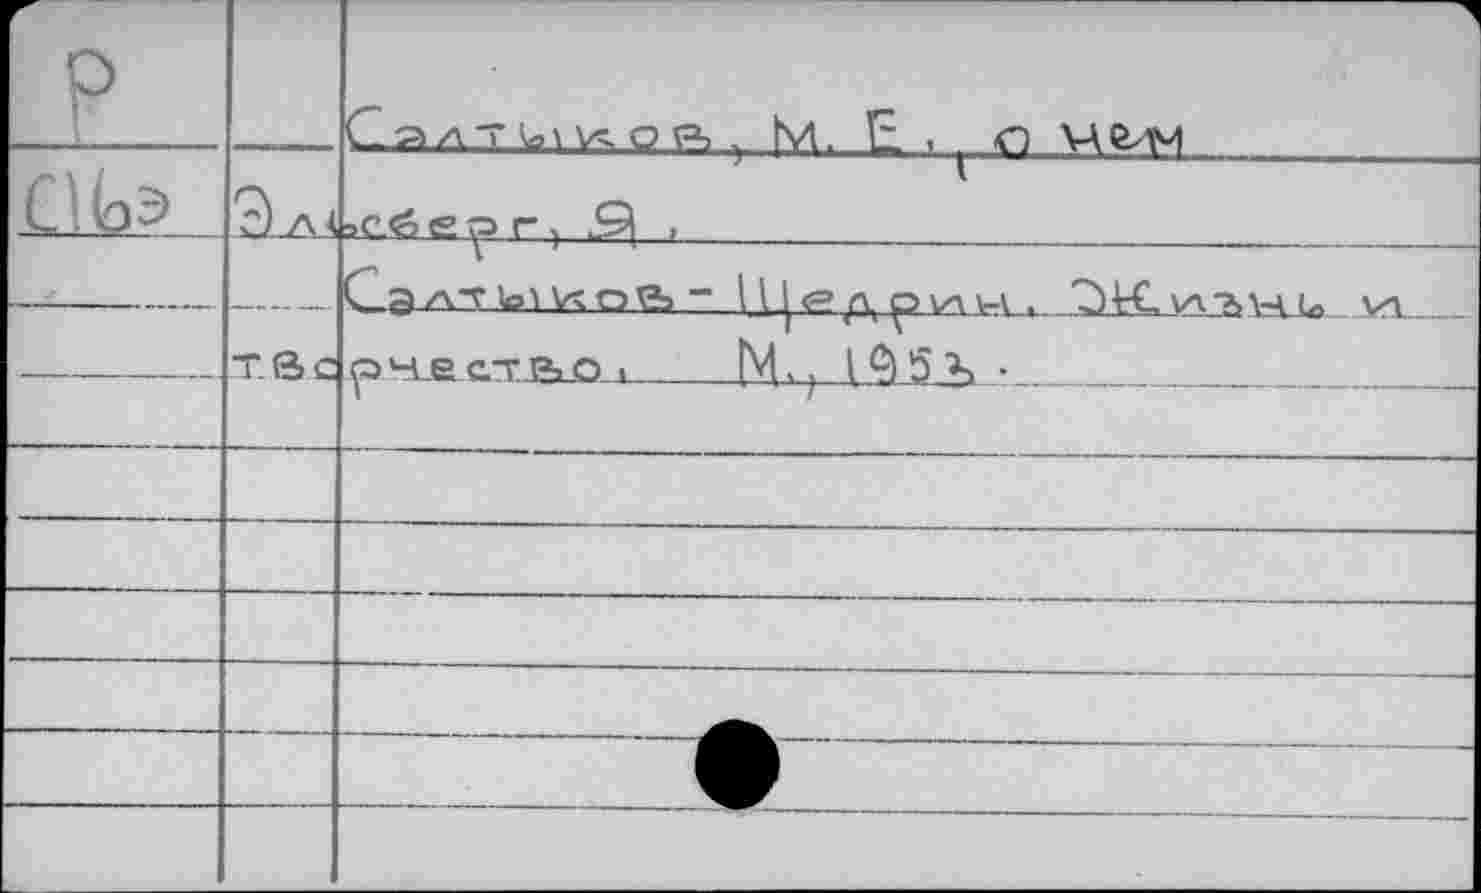 Р
Салтыков, М. Е., о нем
С16э
Эльсберг, Я.
Салтыков-Щедрин. Жизнь и
творчество. М., 1953.